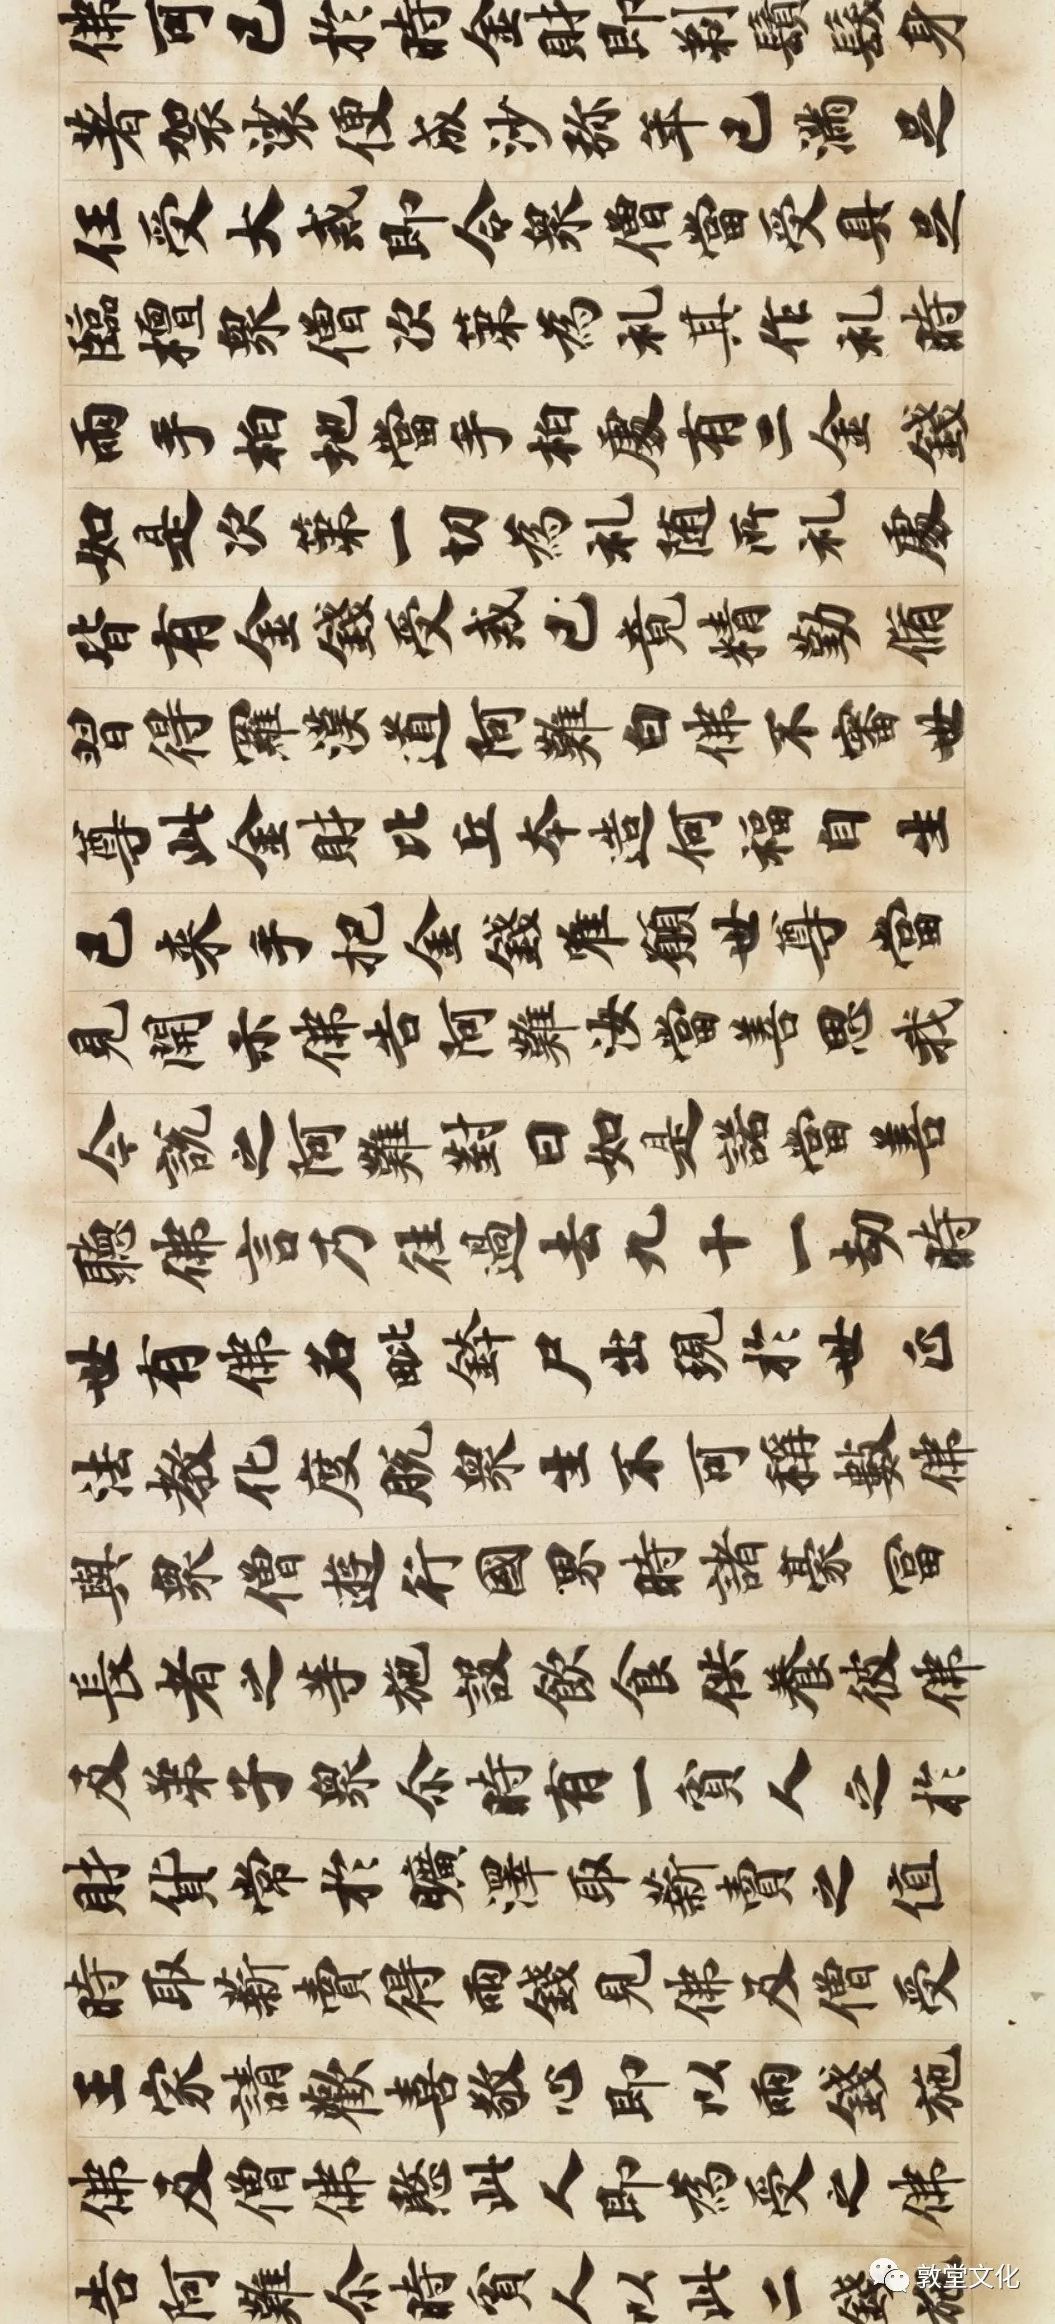 佛可已於時金財即剃鬚髮身
著袈裟便成沙弥年已滿足
任受大戒即合衆僧當受具足
臨檀衆僧次第為礼其作礼時
兩手拍地當手拍處有二金錢
如是次第一切為礼随所礼處
皆有金錢受戒已竟精勤脩
習得羅漢道阿難白佛不審世
尊此金財比丘本造何福自生
已来手把金錢唯願世尊當
見開示佛告阿難汝當善思我
今說之阿難對曰如是諾當善
聽佛言乃往過去九十一劫時
世有佛名毗鉢尸出現於世正
法教化度脫衆生不可稱數佛
與衆僧遊行國界時諸豪富
長者之等施設飲食供養彼佛
及弟子衆尒時有一貧人乏於
財貨常於曠澤取薪賣之值
時取薪賣得兩錢見佛及僧受
王家請歡喜敬心即以兩錢施
佛及僧佛愍此人即為受之佛
告阿難尒時貧人以此二錢
敦堂文化